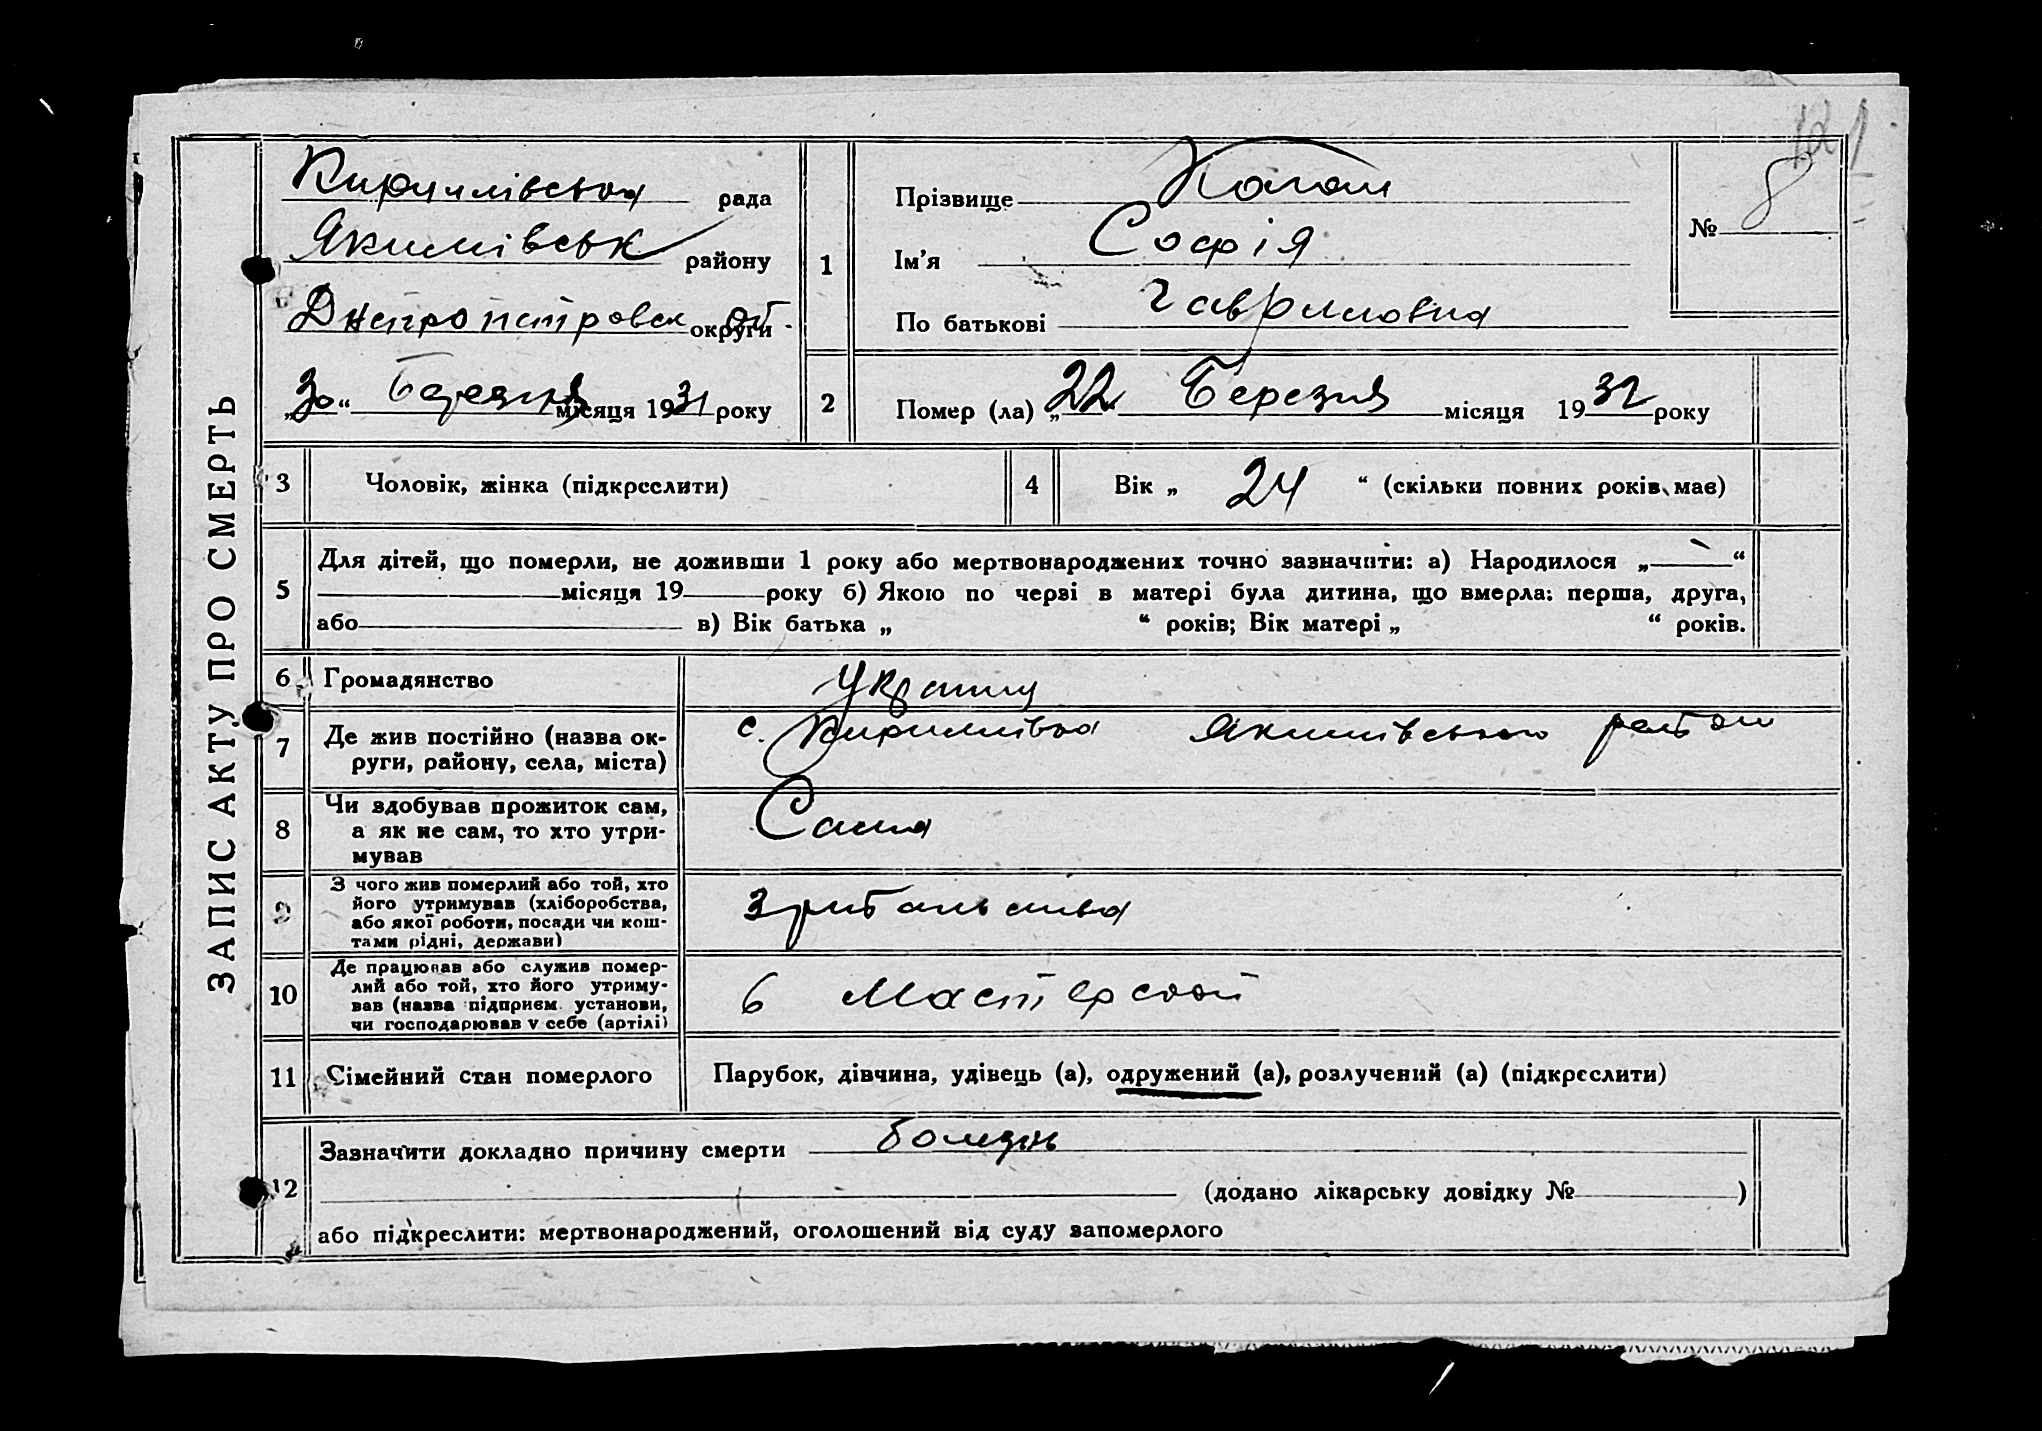 ЗАПИС АКТУ ПРО СМЕРТЬ
Кирилівська рада
Якимівськ району
Днепропетровск округи
„30“ Березня місяця 1931 року
1
Прізвище
Ім’я Софія
По батькові Гавриловна
№ 8
2
Помер (ла) „22“ Березня місяця 1932 року
3 Чоловік, жінка (підкреслити)
4 Вік „ 24 “ (скільки повних років має)
5
Для дітей, що померли, не доживши 1 року або мертвонароджених точно зазначити: а) Народилося „ “
місяця 19 року б) Якою по черзі в матері була дитина, що вмерла: перша, друга,
або в) Вік батька „ “ років; Вік матері „ “ років.
6 Громадянство
7 Де жив постійно (назва ок-
руги, району, села, міста)
с. Кирилівка Якимівського район
8 Чи здобував прожиток сам,
а як не сам, то хто утри-
мував
Сама
9 З чого жив померлий або той, хто
його утримував (хліборобства,
або якої роботи, посади чи кош-
тами рідні, держави)
10 Де працював або служив помер-
лий або той, хто його утриму-
вав (назва підприєм. установи,
чи господарював у себе (артілі)
в Мастерской
11 Сімейний стан померлого
Парубок, дівчина, удівець (а), одружений (а), розлучений (а) (підкреслити)
12
Зазначити докладно причину смерти
(додано лікарську довідку № )
або підкреслити: мертвонароджений, оголошений від суду запомерлого